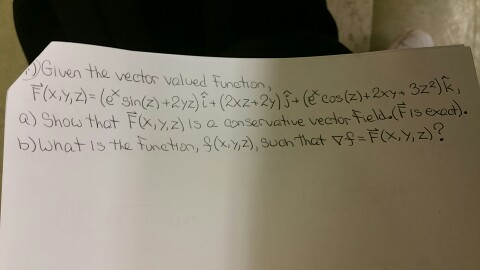 1.) Given the vector valued function,
F⃗(x,y,z) = (eˣ sin(z)+2yz) î + (2xz+2y) ĵ + (eˣ cos(z)+2xy+3z²) k̂,
a) Show that F⃗(x,y,z) is a conservative vector field. (F⃗ is exact).
b) What is the function, f(x,y,z), such that ∇f = F⃗(x,y,z)?